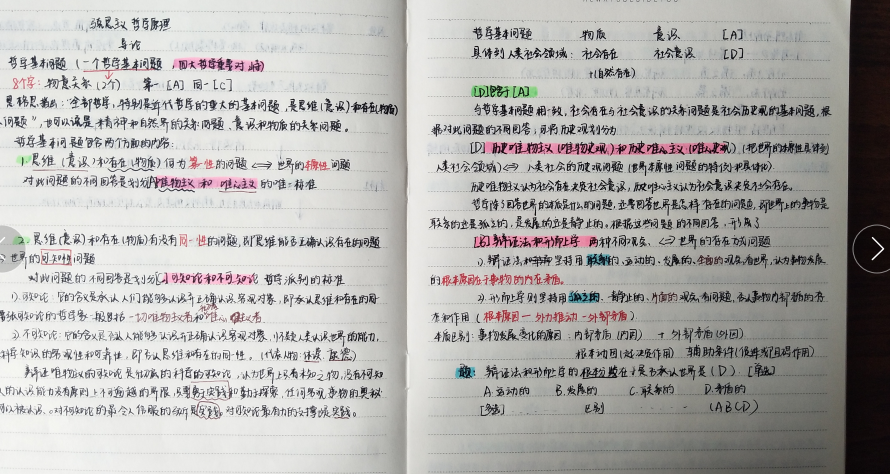 马克思主义 哲学原理
导论
哲学基本问题（一个哲学基本问题，四大哲学重要对峙）
8个字：物意关系（2个） 第一 [A] 同一 [C]
恩格思指出：全部哲学，特别是近代哲学的重大的基本问题，是思维（意识）和存在（物质）
问题"，也可以说是精神和自然界的关系问题、意识和物质的关系问题。
哲学基本问题包含两个方面的内容：
1. 思维（意识）和存在（物质）何为第一性的问题 ⟺ 世界的本原性问题
对此问题的不同回答是划分[A]唯物主义和唯心主义的唯一标准
2. 思维（意识）和存在（物质）有没有同一性的问题，即思维能否正确认识存在的问题
世界的可知性问题
对此问题的不同回答是划分[C]可知论和不可知论哲学派别的标准
1) 可知论：它的含义是承认人们能够认识并正确认识客观对象，即承认思维和存在的同
一切唯物主义者和 唯心主义者
2) 不可知论：它的含义是否认人能够认识并正确认识客观对象，怀疑人类认识世界的能力，
科学知识的客观性和可靠性，即否认思维和存在的同一性。（代表人物：休谟、康德）
辩证唯物主义的可知论是彻底的科学的可知论，认为世界上只有未知之物，没有不可知
人的认识能力没有原则上不可逾越的界限，只要 实践和勤于探索，任何客观事物的奥秘
可以被认识。对不可知论的最令人信服的 是实践，对可知论最有力的支撑或实践。
哲学基本问题 物质 意识 [A]
具体到人类社会领域：社会存在 社会意识 [D]
+(自然存在)
[D]略于[A]
与哲学基本问题相一致，社会存在与社会意识的关系问题是社会历史观的基本问题，根
据对此问题的不同回答，可将历史观划分为
[D] 历史唯物主义（唯物史观）和历史唯心主义（唯心史观）（把世界的本原性具体到
人类社会领域）⟺ 人类社会的历史观问题（世界本原性问题的特例和具体化）.
历史唯物主义认为社会存在决定社会意识，历史唯心主义认为社会意识决定社会存在。
哲学除了回答世界的本质是什么的问题，还要回答世界是怎样存在的问题，即世界上的事物是
联系的还是孤立的，是发展的还是静止的。根据这些问题的不同回答，形成了
[B] 辩证法和形而上学 两种不同观点。⟺ 世界的存在方式问题
1). 辩证法，和 持用联系的、运动的、发展的、全面的观点看世界，认为事物发展
的根本原因在于事物的内在矛盾。
2). 形而上学则坚持用孤立的、静止的、片面的观点看问题，否认事物内部矛盾的存
在和作用（根本原因→外力推动→外部矛盾）
本质区别：事物发展变化的原因：内部矛盾（内因） + 外部矛盾（外因）
根本动因（起决定作用） 辅助条件（促进或延缓作用）
题：辩证法和形而上学的根本分歧在于是否承认世界是（D）. [单选]
A. 运动的 B. 发展的 C. 联系的 D. 矛盾的
[多选] 区别 ...... (ABCD)